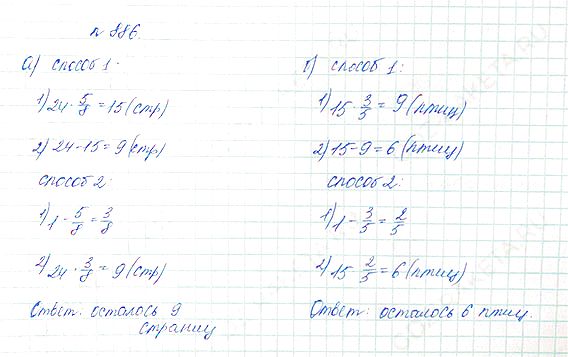 № 886.
а) способ 1.
1) 24 · 5/8 = 15 (стр)
2) 24 - 15 = 9 (стр)
способ 2.
1) 1 - 5/8 = 3/8
2) 24 · 3/8 = 9 (стр)
Ответ: осталось 9
страниц
б) способ 1:
1) 15 · 3/5 = 9 (птиц)
2) 15 - 9 = 6 (птиц)
способ 2:
1) 1 - 3/5 = 2/5
2) 15 · 2/5 = 6 (птиц)
Ответ: осталось 6 птиц.